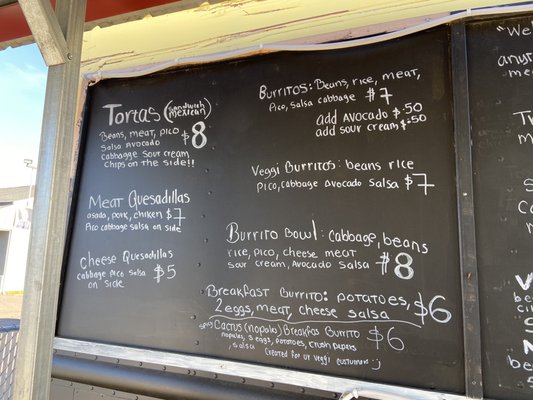 Tortas (Sandwich Mexican)
Beans, meat, pico $8
Salsa Avocado
cabbagge sour cream
chips on the side!!
Meat Quesadillas
asada, pork, chiken $7
Pico cabbage salsa on side
Cheese Quesadillas
cabbage Pico Salsa $5
on side
Burritos: Beans, rice, meat,
Pico, Salsa cabbage $7
add Avocado $.50
add sour cream $.50
Veggi Burritos: beans rice
Pico, cabbage Avocado Salsa $7
Burrito Bowl: cabbage, beans
rice, pico, cheese meat
sour cream, Avocado Salsa $8
Breakfast Burrito: potatoes, $6
2 eggs, meat, cheese salsa
Spicy Cactus (nopole) Breakfas Burrito $6
nopales, 3 eggs, potatoes, crush pepers
, salsa
Created for ur Veggi customers :)
"We
anyt
mea